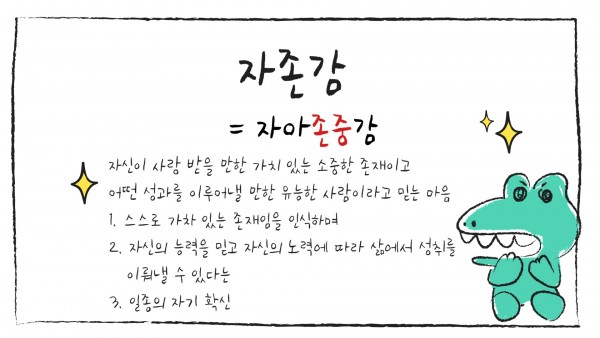 자존감
= 자아존중감
자신이 사람 받을 만한 가치 있는 소중한 존재이고
어떤 성과를 이루어낼 만한 유능한 사람이라고 믿는 마음
1. 스스로 가차 있는 존재임을 인식하며
2. 자신의 능력을 믿고 자신의 노력에 따라 삶에서 성취를
이뤄낼 수 있다는
3. 일종의 자기 확신